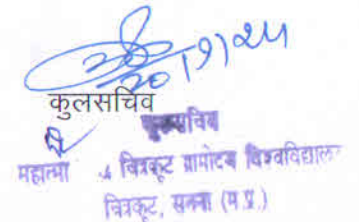 20/9/24
कुलसचिव
कुलसचिव
महात्मा चित्रकूट ग्रामोदय विश्वविद्यालय
चित्रकूट, सतना (म.प्र.)